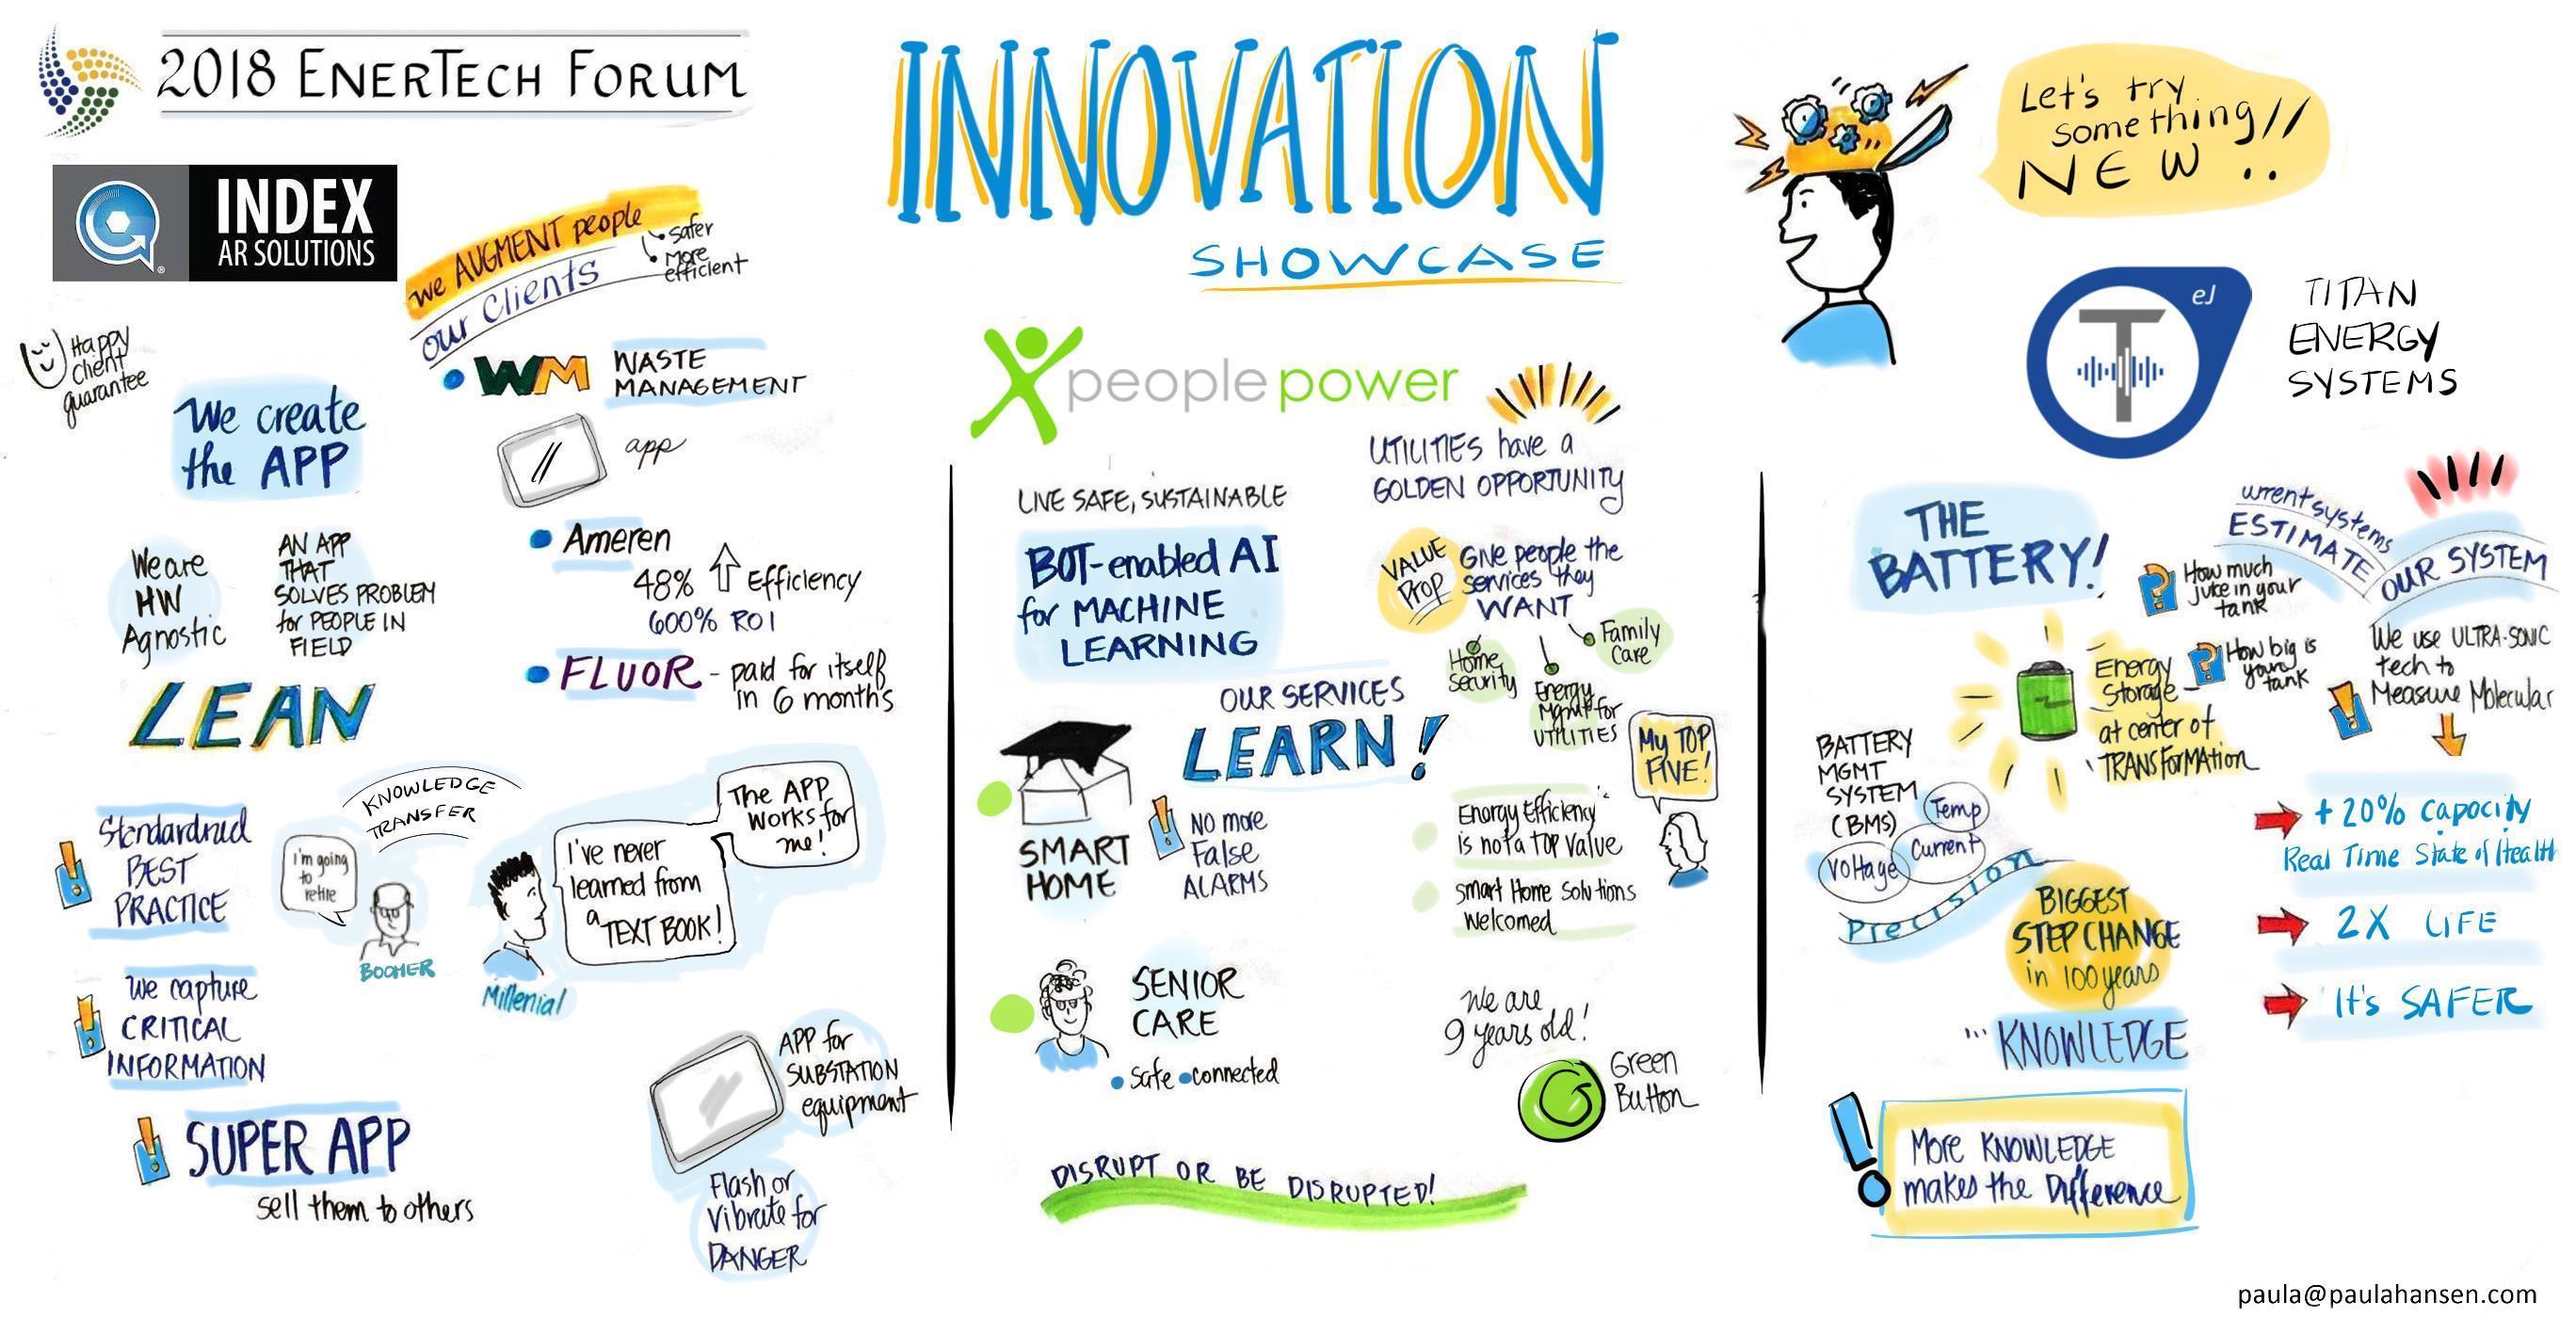 2018 ENERTECH FORUM
INNOVATION
SHOWCASE
Let's try
something!!
NEW..
INDEX
AR SOLUTIONS
®
we AUGMENT people
Safer
More
efficient
our Clients
WM
WASTE
MANAGEMENT
app
Happy
client
guarantee
We create
the APP
We are
HW
Agnostic
AN APP
THAT
SOLVES PROBLEM
for PEOPLE IN
FIELD
Ameren
48% Efficiency
600% ROI
FLUOR - paid for itself
in 6 months
LEAN
KNOWLEDGE
TRANSFER
Standardized
BEST
PRACTICE
I'm going
to
retire
BOOMER
I've never
learned from
a TEXT BOOK!
The APP
works for
me!
Millenial
We capture
CRITICAL
INFORMATION
SUPER APP
sell them to others
APP for
SUBSTATION
equipment
Flash or
Vibrate for
DANGER
peoplepower
LIVE SAFE, SUSTAINABLE
BOT-enabled AI
for MACHINE
LEARNING
UTILITIES have a
GOLDEN OPPORTUNITY
VALUE
Prop
Give people the
services they
WANT
Home
Security
Energy
Mgmt for
UTILITIES
Family
Care
OUR SERVICES
LEARN!
SMART
HOME
No more
False
ALARMS
My TOP
FIVE!
Energy Efficiency
is not a TOP Value
Smart Home Solutions
Welcomed
SENIOR
CARE
Safe connected
We are
9 years old!
Green
Button
DISRUPT OR BE DISRUPTED!
T
eJ
TITAN
ENERGY
SYSTEMS
THE
BATTERY!
urrent systems
ESTIMATE
How much
juice in your
tank
How big is
your
tank
Energy
Storage -
at center of
TRANSFORMATION
OUR SYSTEM
We use ULTRA-SONIC
tech to
Measure Molecular
BATTERY
MGMT
SYSTEM
(BMS)
Temp
Voltage
Current
Precision
BIGGEST
STEP CHANGE
in 100 years
... KNOWLEDGE
+20% Capacity
Real Time State of Health
2X LIFE
It's SAFER
More KNOWLEDGE
makes the Difference
paula@paulahansen.com